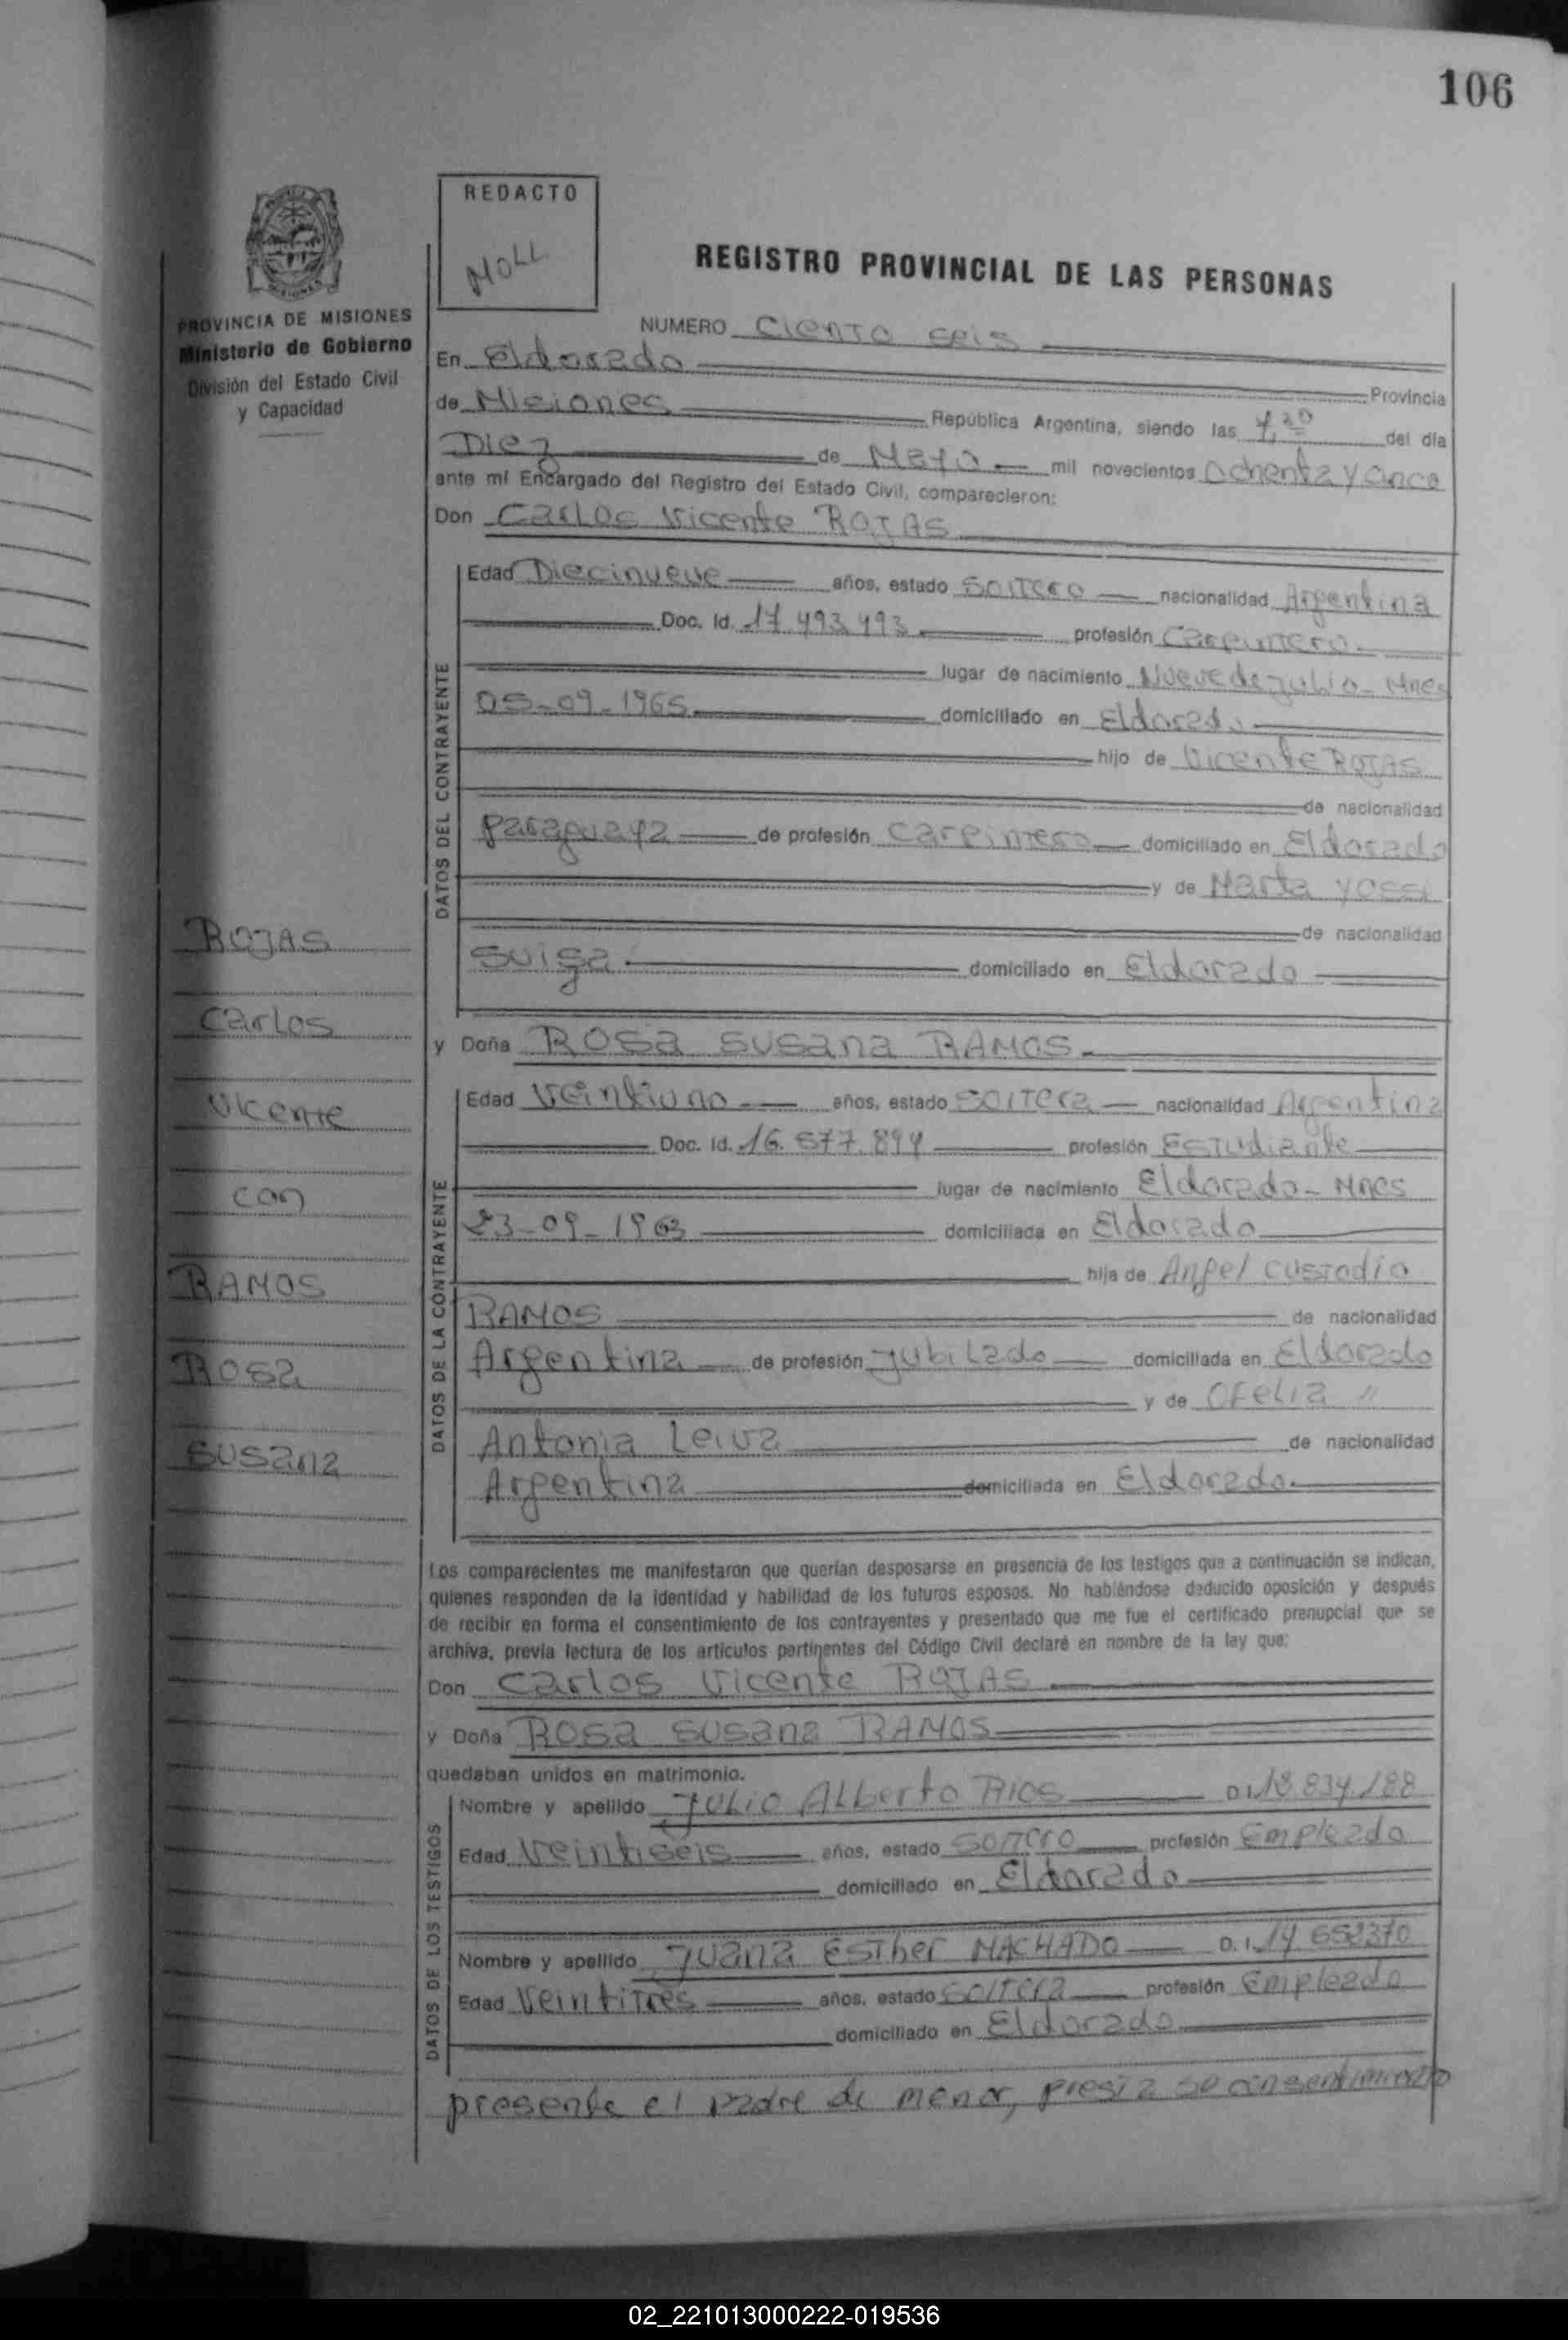 106
REDACTO
MOLL
REGISTRO PROVINCIAL DE LAS PERSONAS
PROVINCIA DE MISIONES
Ministerio de Gobierno
División del Estado Civil
y Capacidad
NUMERO Ciento seis
En Eldorado Provincia
de Misiones República Argentina, siendo las 7,30 del día
Diez de Mayo mil novecientos ochenta y cinco
ante mí Encargado del Registro del Estado Civil, comparecieron:
Don Carlos Vicente ROJAS
DATOS DEL CONTRAYENTE
Edad Diecinueve años, estado soltero nacionalidad Argentina
Doc. Id. 17.493.493 profesión Carpintero
lugar de nacimiento Nueve de Julio - Mnes
05-09-1965 domiciliado en Eldorado
hijo de Vicente ROJAS
de nacionalidad
paraguaya de profesión carpintero domiciliado en Eldorado
y de Marta Yossi
de nacionalidad
suiza domiciliado en Eldorado
y Doña Rosa Susana RAMOS
DATOS DE LA CONTRAYENTE
Edad Veintiuno años, estado soltera nacionalidad Argentina
Doc. Id. 16.577.894 profesión Estudiante
lugar de nacimiento Eldorado - Mnes
23-09-1963 domiciliada en Eldorado
hija de Angel Custodio
RAMOS de nacionalidad
Argentina de profesión jubilado domiciliada en Eldorado
y de Ofelia "
Antonia Leiva de nacionalidad
Argentina domiciliada en Eldorado
ROJAS
Carlos
Vicente
con
RAMOS
Rosa
Susana
Los comparecientes me manifestaron que querían desposarse en presencia de los testigos que a continuación se indican,
quienes responden de la identidad y habilidad de los futuros esposos. No habiéndose deducido oposición y después
de recibir en forma el consentimiento de los contrayentes y presentado que me fue el certificado prenupcial que se
archiva, previa lectura de los artículos pertinentes del Código Civil declaré en nombre de la ley que:
Don Carlos Vicente ROJAS
y Doña Rosa Susana RAMOS
quedaban unidos en matrimonio.
DATOS DE LOS TESTIGOS
Nombre y apellido Julio Alberto Rios D.I. 13.834.188
Edad Veintiseis años, estado soltero profesión Empleado
domiciliado en Eldorado
Nombre y apellido Juana Esther MACHADO D.I. 14.652370
Edad Veintitres años, estado soltera profesión Empleado
domiciliado en Eldorado
presente el padre de menor, presta so consentimiento
02_221013000222-019536